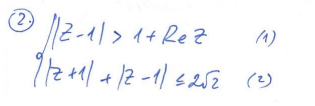 2.
|z-1| > 1 + Re z (1)
|z+1| + |z-1| ≤ 2√2 (2)